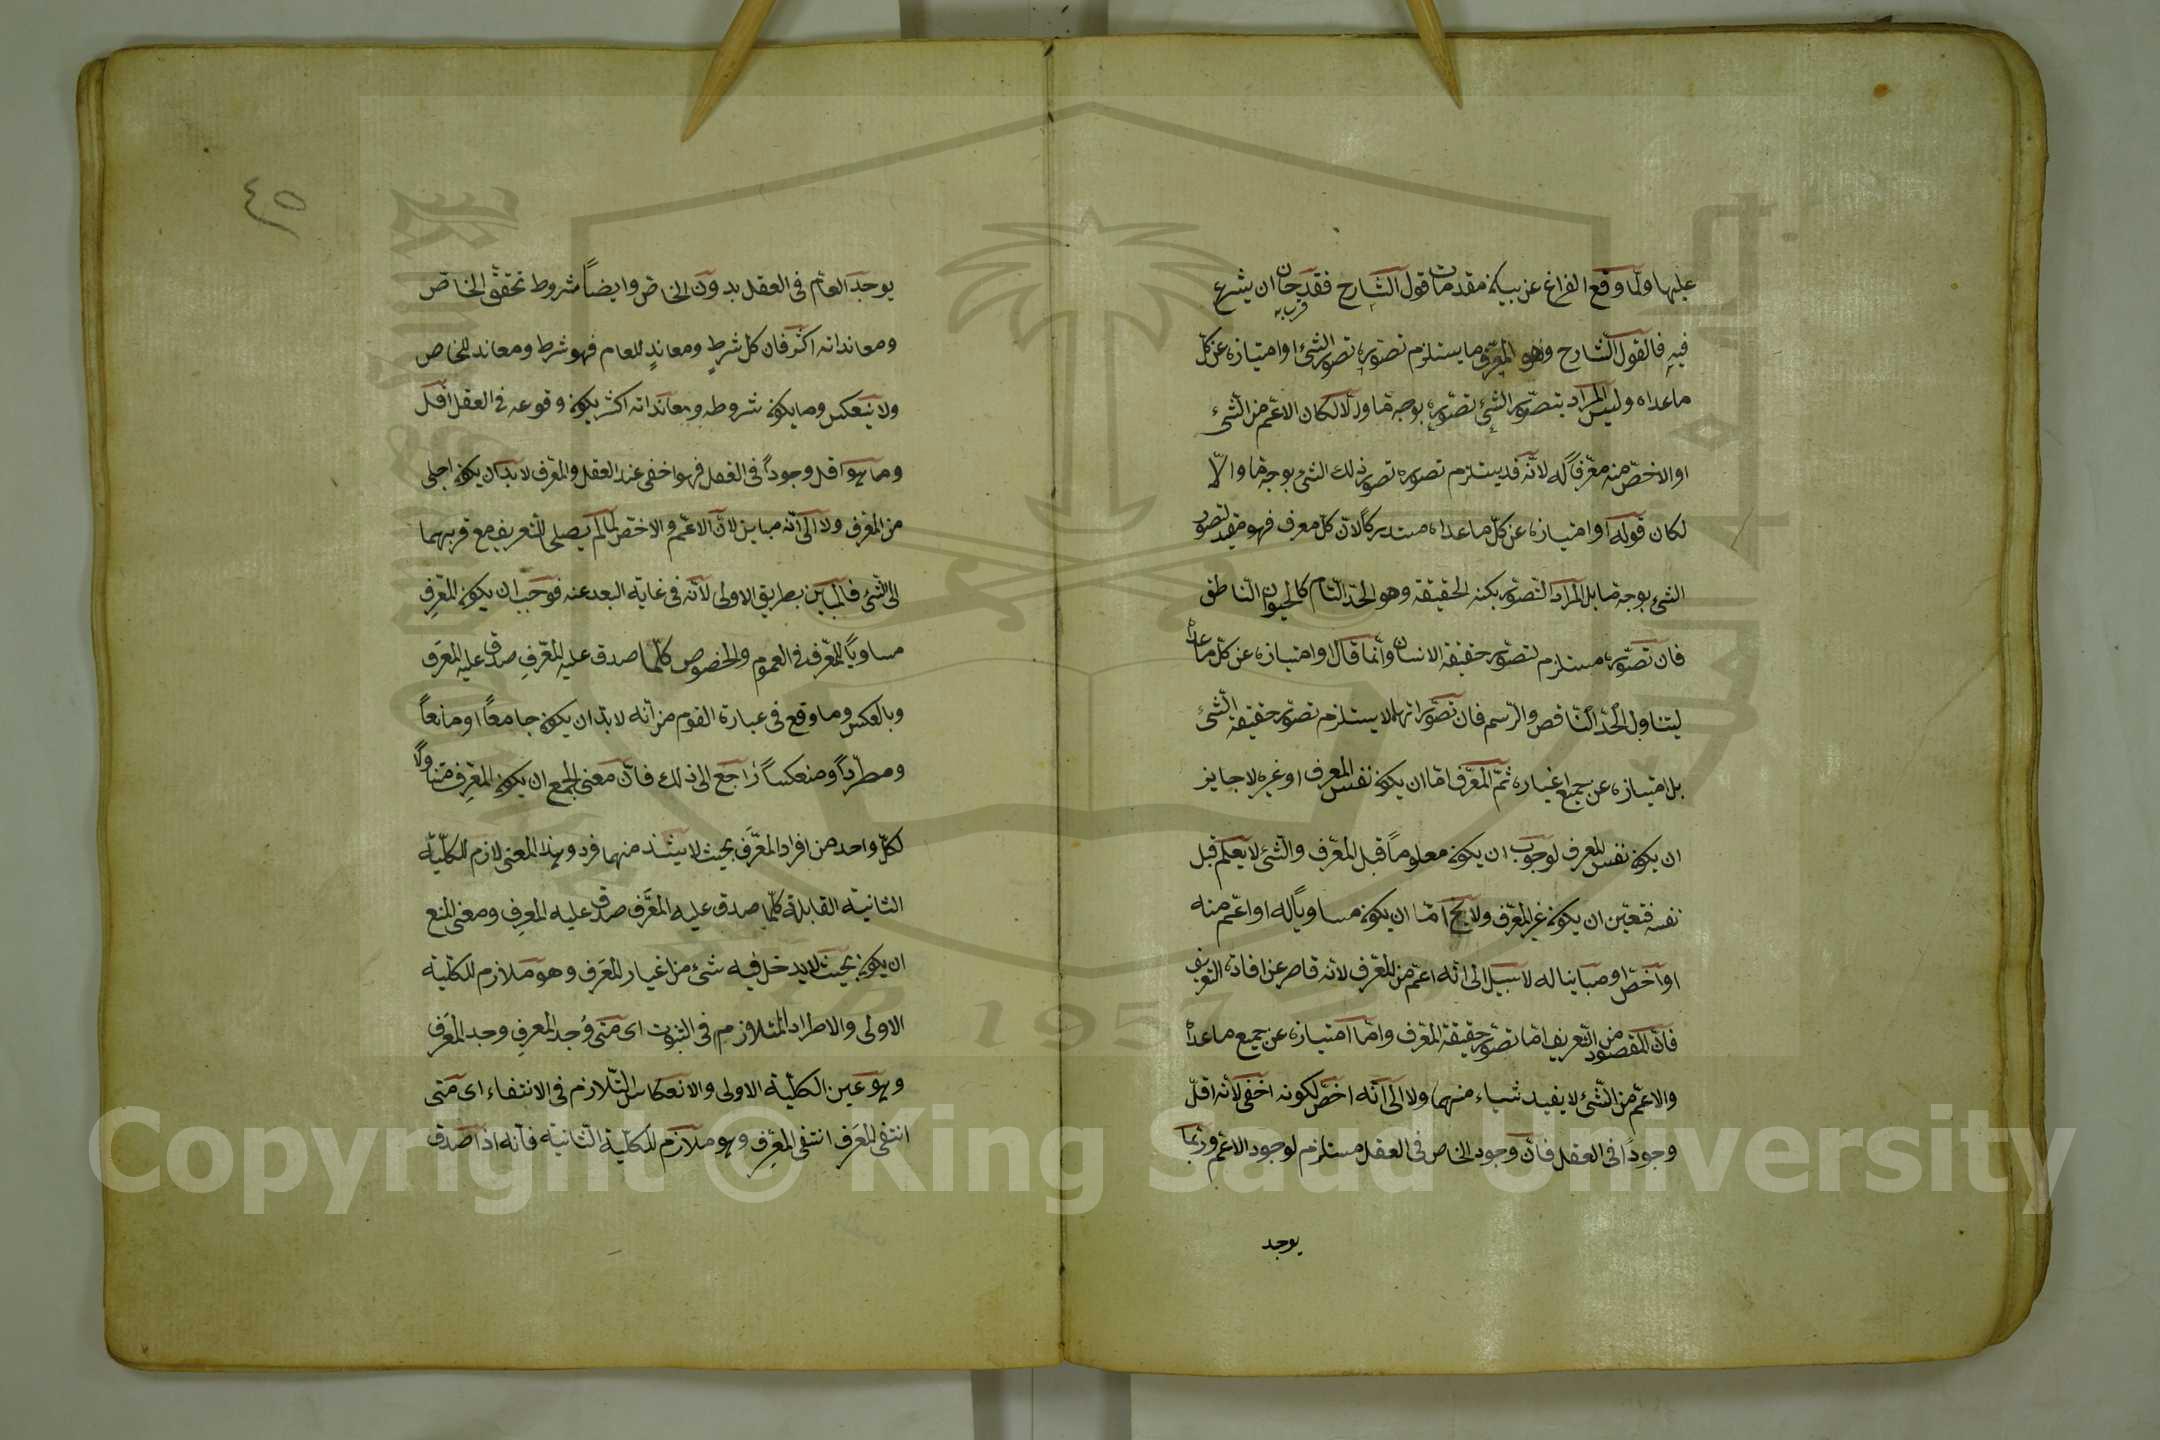 عليها ولما وقع الفراغ عن بيان مقدمات قول الشارح فقد حان ان يشرع
فيه فالقول الشارح وهو المعرف ما يستلزم تصوره تصور الشئ او امتيازه عن كل
ما عداه وليس المراد بتصور الشئ تصوره بوجه ما والا لكان الاعم من الشئ
او الاخص منه معرفا له لانه قد يستلزم تصوره تصور ذلك الشئ بوجه ما والا
لكان قوله او امتيازه عن كل ما عداه مستدركا لان كل معرف فهو مفيد لتصور
الشئ بوجه ما بل المراد التصور بكنه الحقيقة وهو الحد التام كالحيوان الناطق
فان تصوره مستلزم لتصور حقيقة الانسان وانما قال او امتيازه عن كل ما عداه
ليتناول الحد الناقص والرسم فان تصوراتها لا يستلزم تصور حقيقة الشئ
بل امتيازه عن جميع اغياره ثم المعرف اما ان يكون نفس المعرف او غيره لا جايز
ان يكون نفس المعرف لوجوب ان يكون معلوما قبل المعرف والشئ لا يعلم قبل
نفسه فتعين ان يكون غير المعرف ولا يخ اما ان يكون مساويا له او اعم منه
او اخص او مباينا له لا سبيل الى انه اعم من المعرف لانه قاصر عن افادة التعريف
فان المقصود من التعريف اما تصور حقيقة المعرف واما امتيازه عن جميع ما عداه
والاعم من الشئ لا يفيد شياء منهما ولا الى انه اخص لكونه اخفى لانه اقل
وجودا فى العقل فان وجود الخاص فى العقل مستلزم لوجود الاعم وربما
يوجد
٤٥
يوجد العام فى العقل بدون الخاص وايضا شروط تحقق الخاص
ومعانداته اكثر فان كل شرط ومعاند للعام فهو شرط ومعاند للخاص
ولا ينعكس وما يكون شروطه ومعانداته اكثر يكون وقوعه فى العقل اقل
وما هو اقل وجودا فى العقل فهو اخفى عند العقل والمعرف لا بد ان يكون اجلى
من المعرف ولا الى انه مباين لان الاعم والاخص لما لم يصلح للتعريف مع قربهما
الى الشئ فالمباين بطريق الاولى لانه فى غاية البعد عنه فوجب ان يكون المعرف
مساويا للمعرف فى العموم والخصوص كلما صدق عليه المعرف صدق عليه المعرف
وبالعكس وما وقع فى عبارة القوم من انه لا بد ان يكون جامعا او مانعا
ومطردا ومنعكسا راجع الى ذلك فان معنى الجمع ان يكون المعرف متناولا
لكل واحد من افراد المعرف بحيث لا يشذ منها فرد وهذا المعنى لازم للكلية
الثانية القابلة كلما صدق عليه المعرف صدق عليه المعرف ومعنى المنع
ان يكون بحيث لا يدخل فيه شئ من اغيار المعرف وهو ملازم للكلية
الاولى والاطراد المتلازم فى الثبوت اى متى وجد المعرف وجد المعرف
وهو عين الكلية الاولى والانعكاس التلازم فى الانتفاء اى متى
انتفى المعرف انتفى المعرف وهو ملازم للكلية الثانية فانه اذا صدق
1957
Copyright © King Saud University